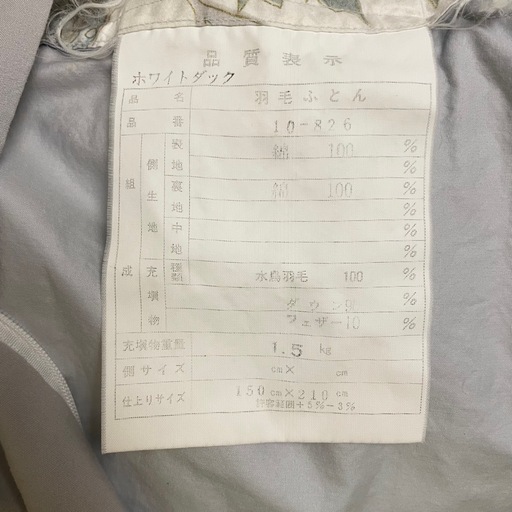 品質表示
ホワイトダック
品名 羽毛ふとん
品番 10-826
組成 側生地 表地 綿 100 %
%
裏地 綿 100 %
%
中地 %
%
充填物 種類 水鳥羽毛 100 %
ダウン %
フェザー10 %
充填物重量 1.5 kg
側サイズ cm× cm
仕上りサイズ 150cm×210cm
許容範囲+5%-3%